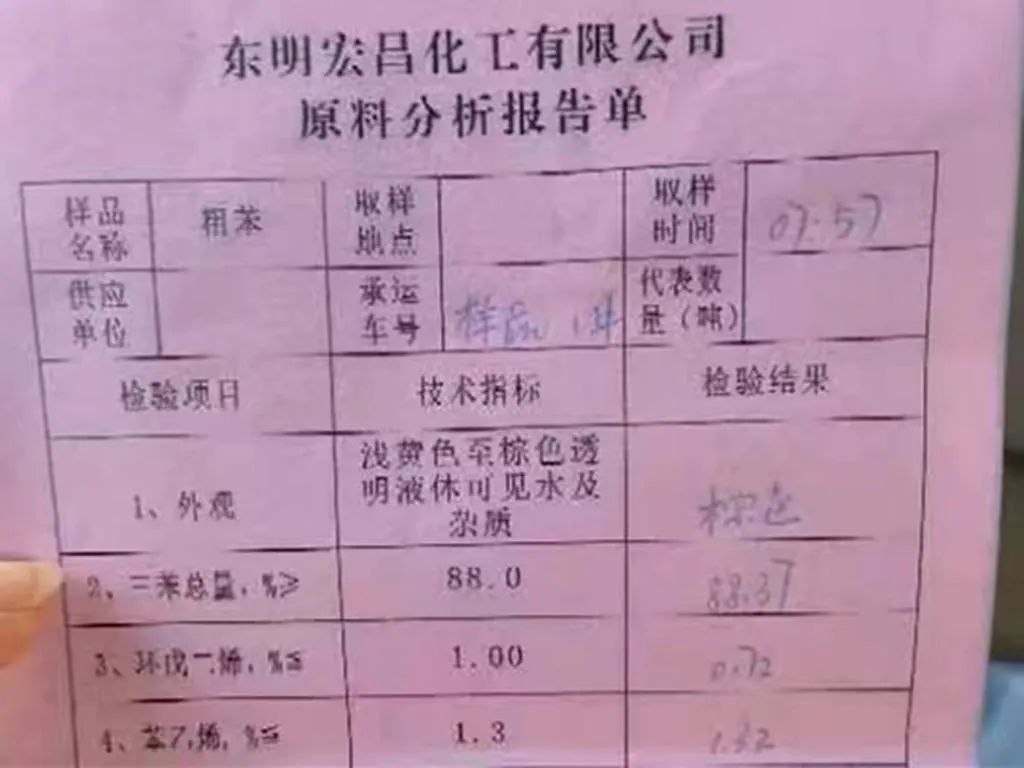 东明宏昌化工有限公司
原料分析报告单
样品名称 粗苯 取样地点 取样时间 07:57
供应单位 承运车号 样品 1# 代表数量(吨)
检验项目 技术指标 检验结果
1、外观 浅黄色至棕色透明液体可见水及杂质 棕色
2、三苯总量,%≥ 88.0 88.37
3、环戊二烯,%≤ 1.00 0.72
4、苯乙烯,%≤ 1.3 1.32